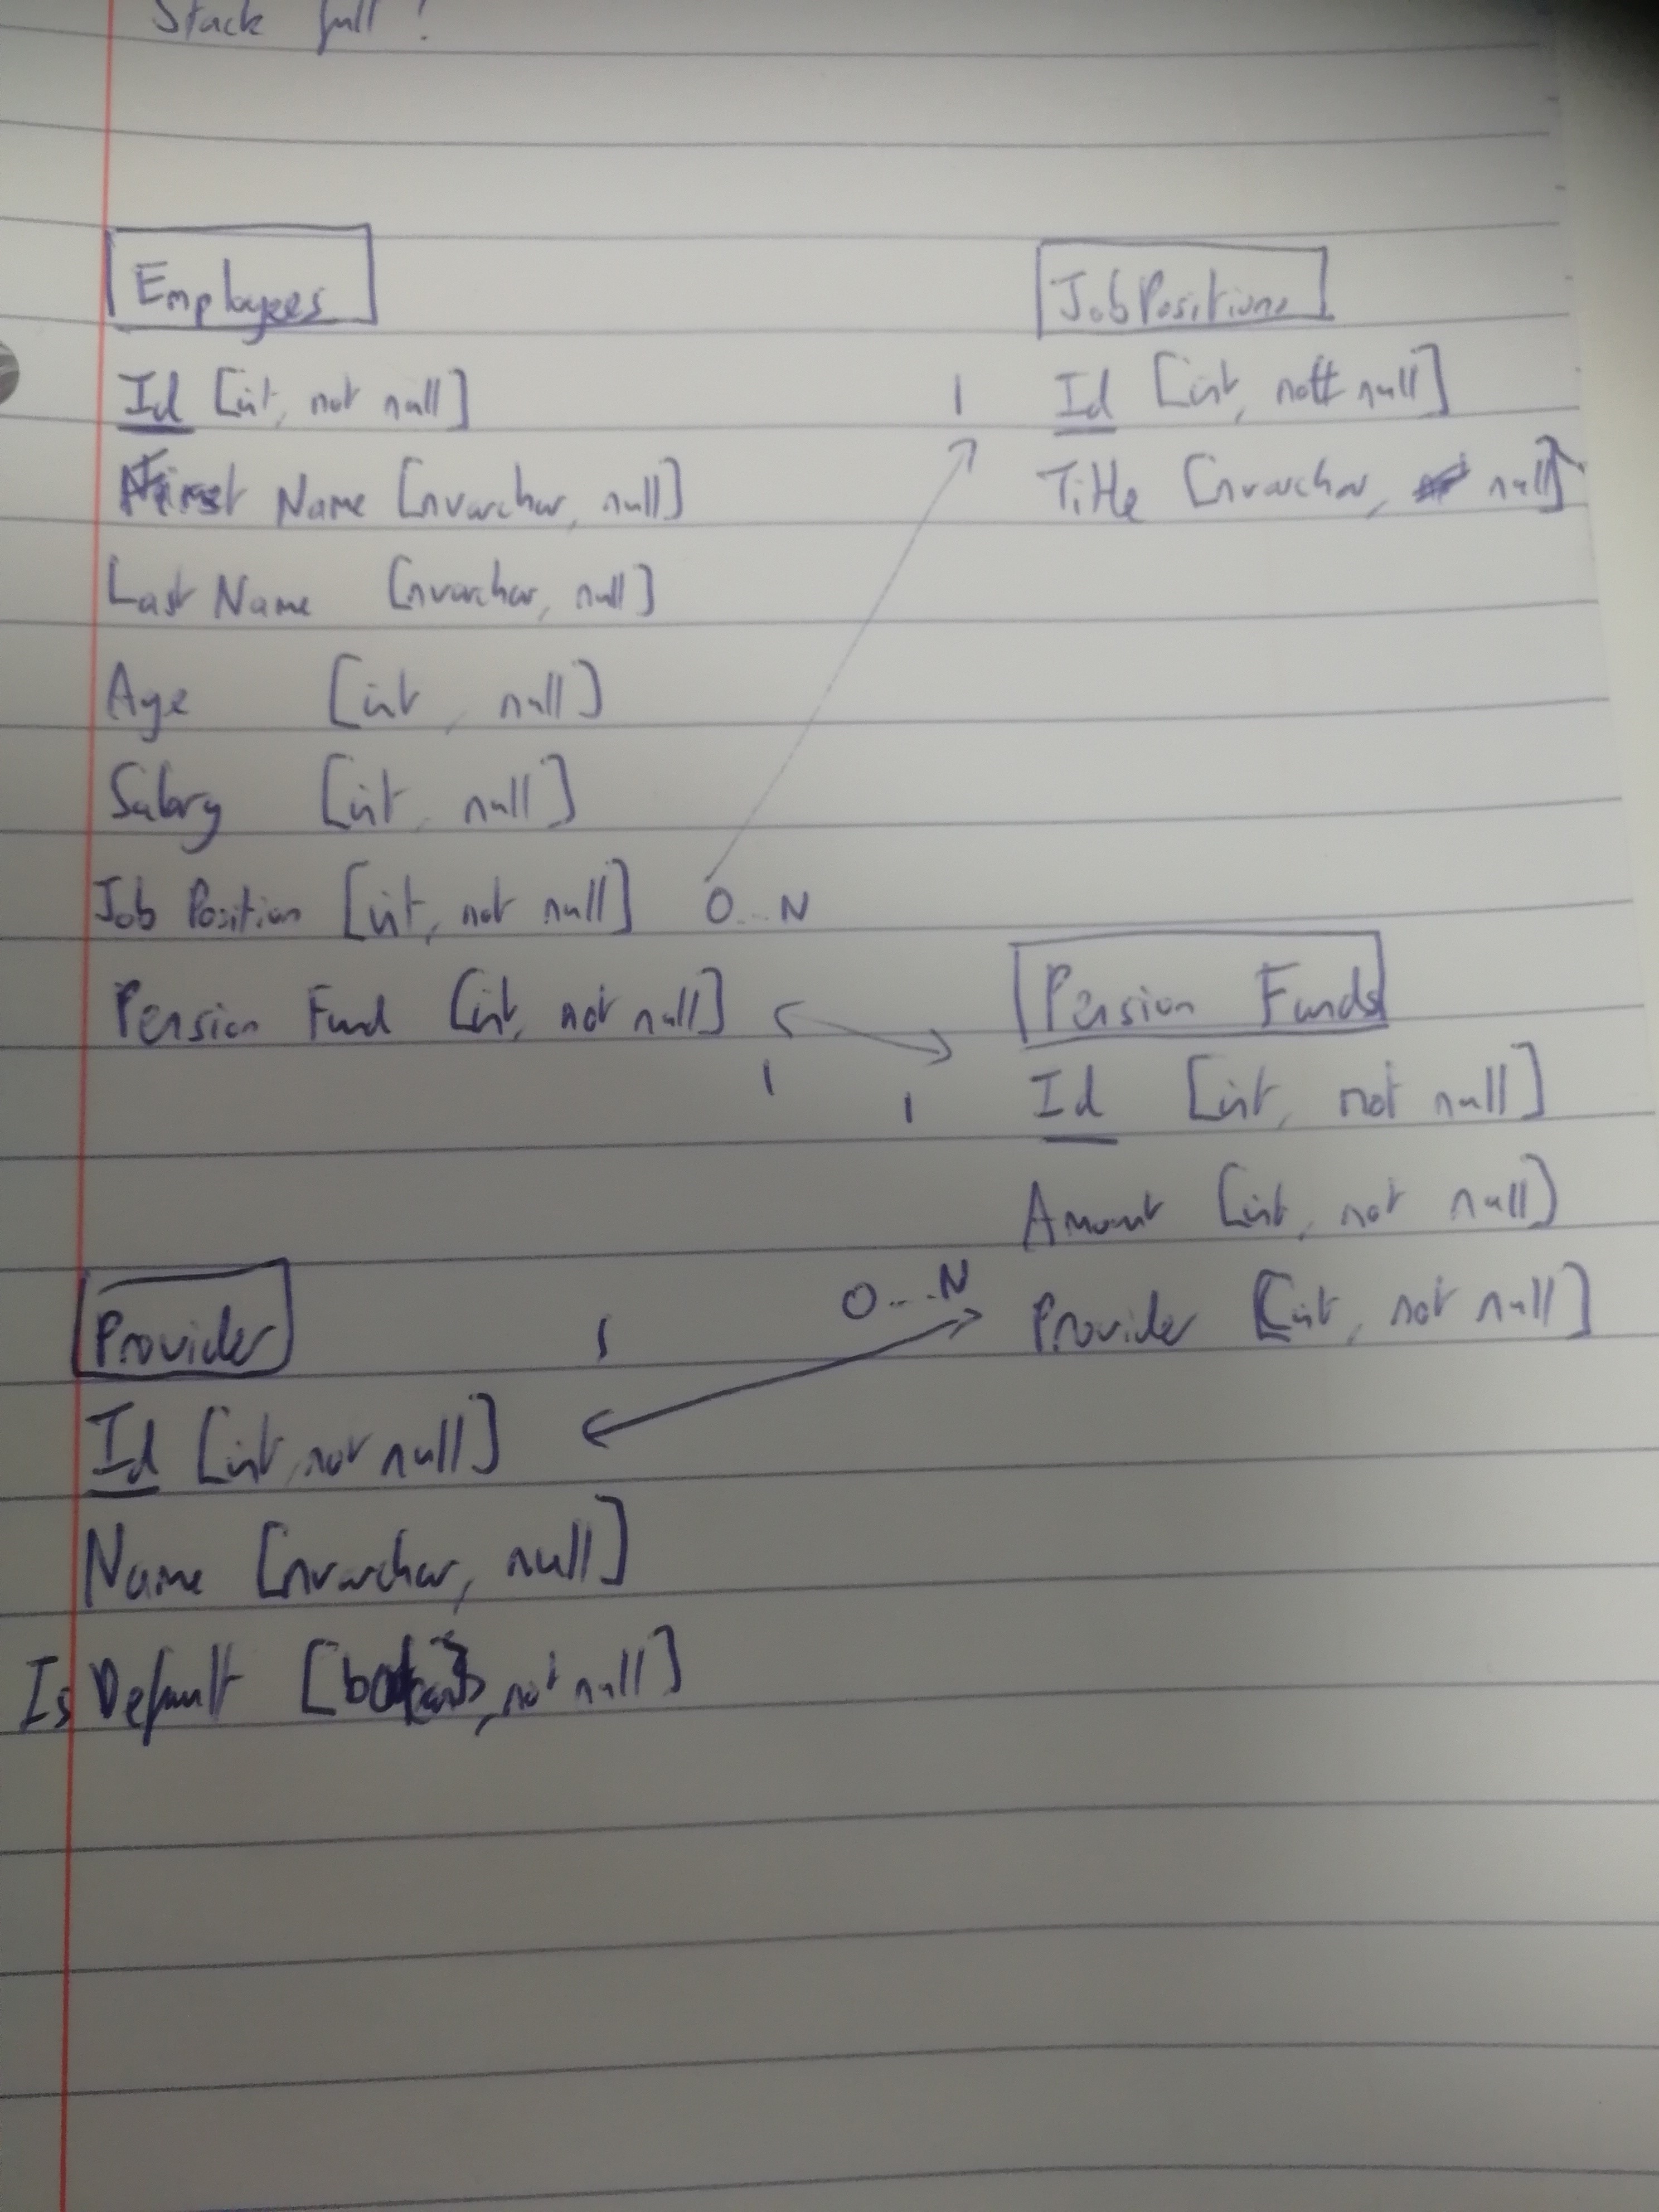 Stack full!
Employees
Id [int, not null]
First Name [nvarchar, null]
Last Name [nvarchar, null]
Age [int, null]
Salary [int, null]
Job Position [int, not null] 0...N
Pension Fund [int, not null]
1
Job Positions
1 Id [int, not null]
Title [nvarchar, null]
Pension Funds
1 Id [int, not null]
Amount [int, not null]
0...N Provider [int, not null]
Provider
1
Id [int, not null]
Name [nvarchar, null]
Is Default [ , not null]